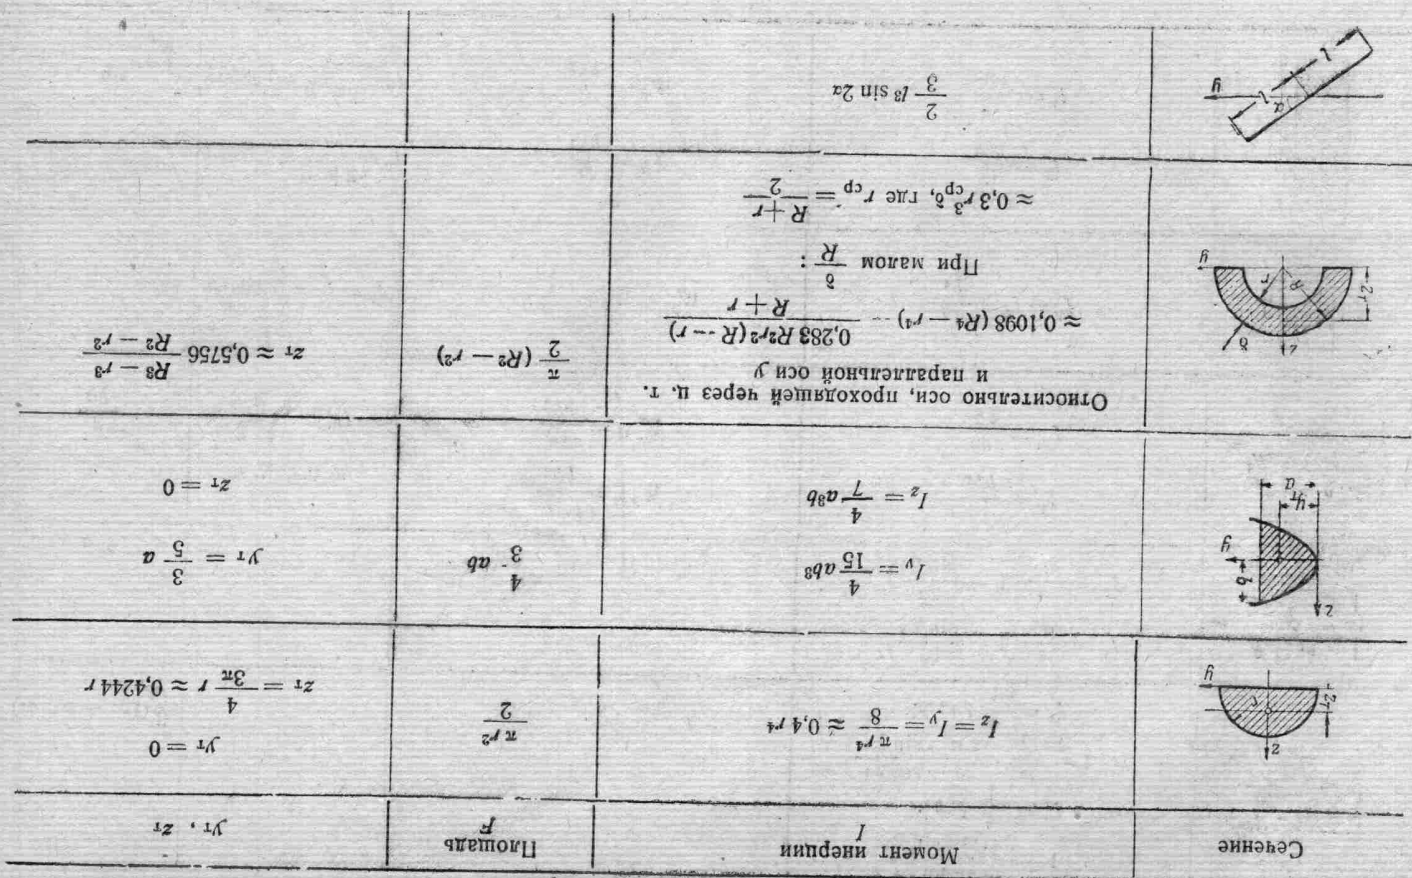 Сечение
Момент инерции
I
Площадь
F
yт, zт
z
y
r
zт
I_z = I_y = π r⁴ / 8 ≈ 0,4 r⁴
π r² / 2
yт = 0
zт = 4 / 3π r ≈ 0,4244 r
z
y
b
yт
a
I_y = 4 / 15 ab³
I_z = 4 / 7 a³b
4 / 3 ab
yт = 3 / 5 a
zт = 0
z
y
δ
R
r
zт
Относительно оси, проходящей через ц. т.
и параллельной оси y
≈ 0,1098 (R⁴ — r⁴) — 0,283 R²r² (R — r) / R + r
При малом δ / R :
≈ 0,3 r³ср δ, где rср = R + r / 2
π / 2 (R² — r²)
zт ≈ 0,5756 R³ — r³ / R² — r²
y
α
l
l
2 / 3 l³ sin 2α